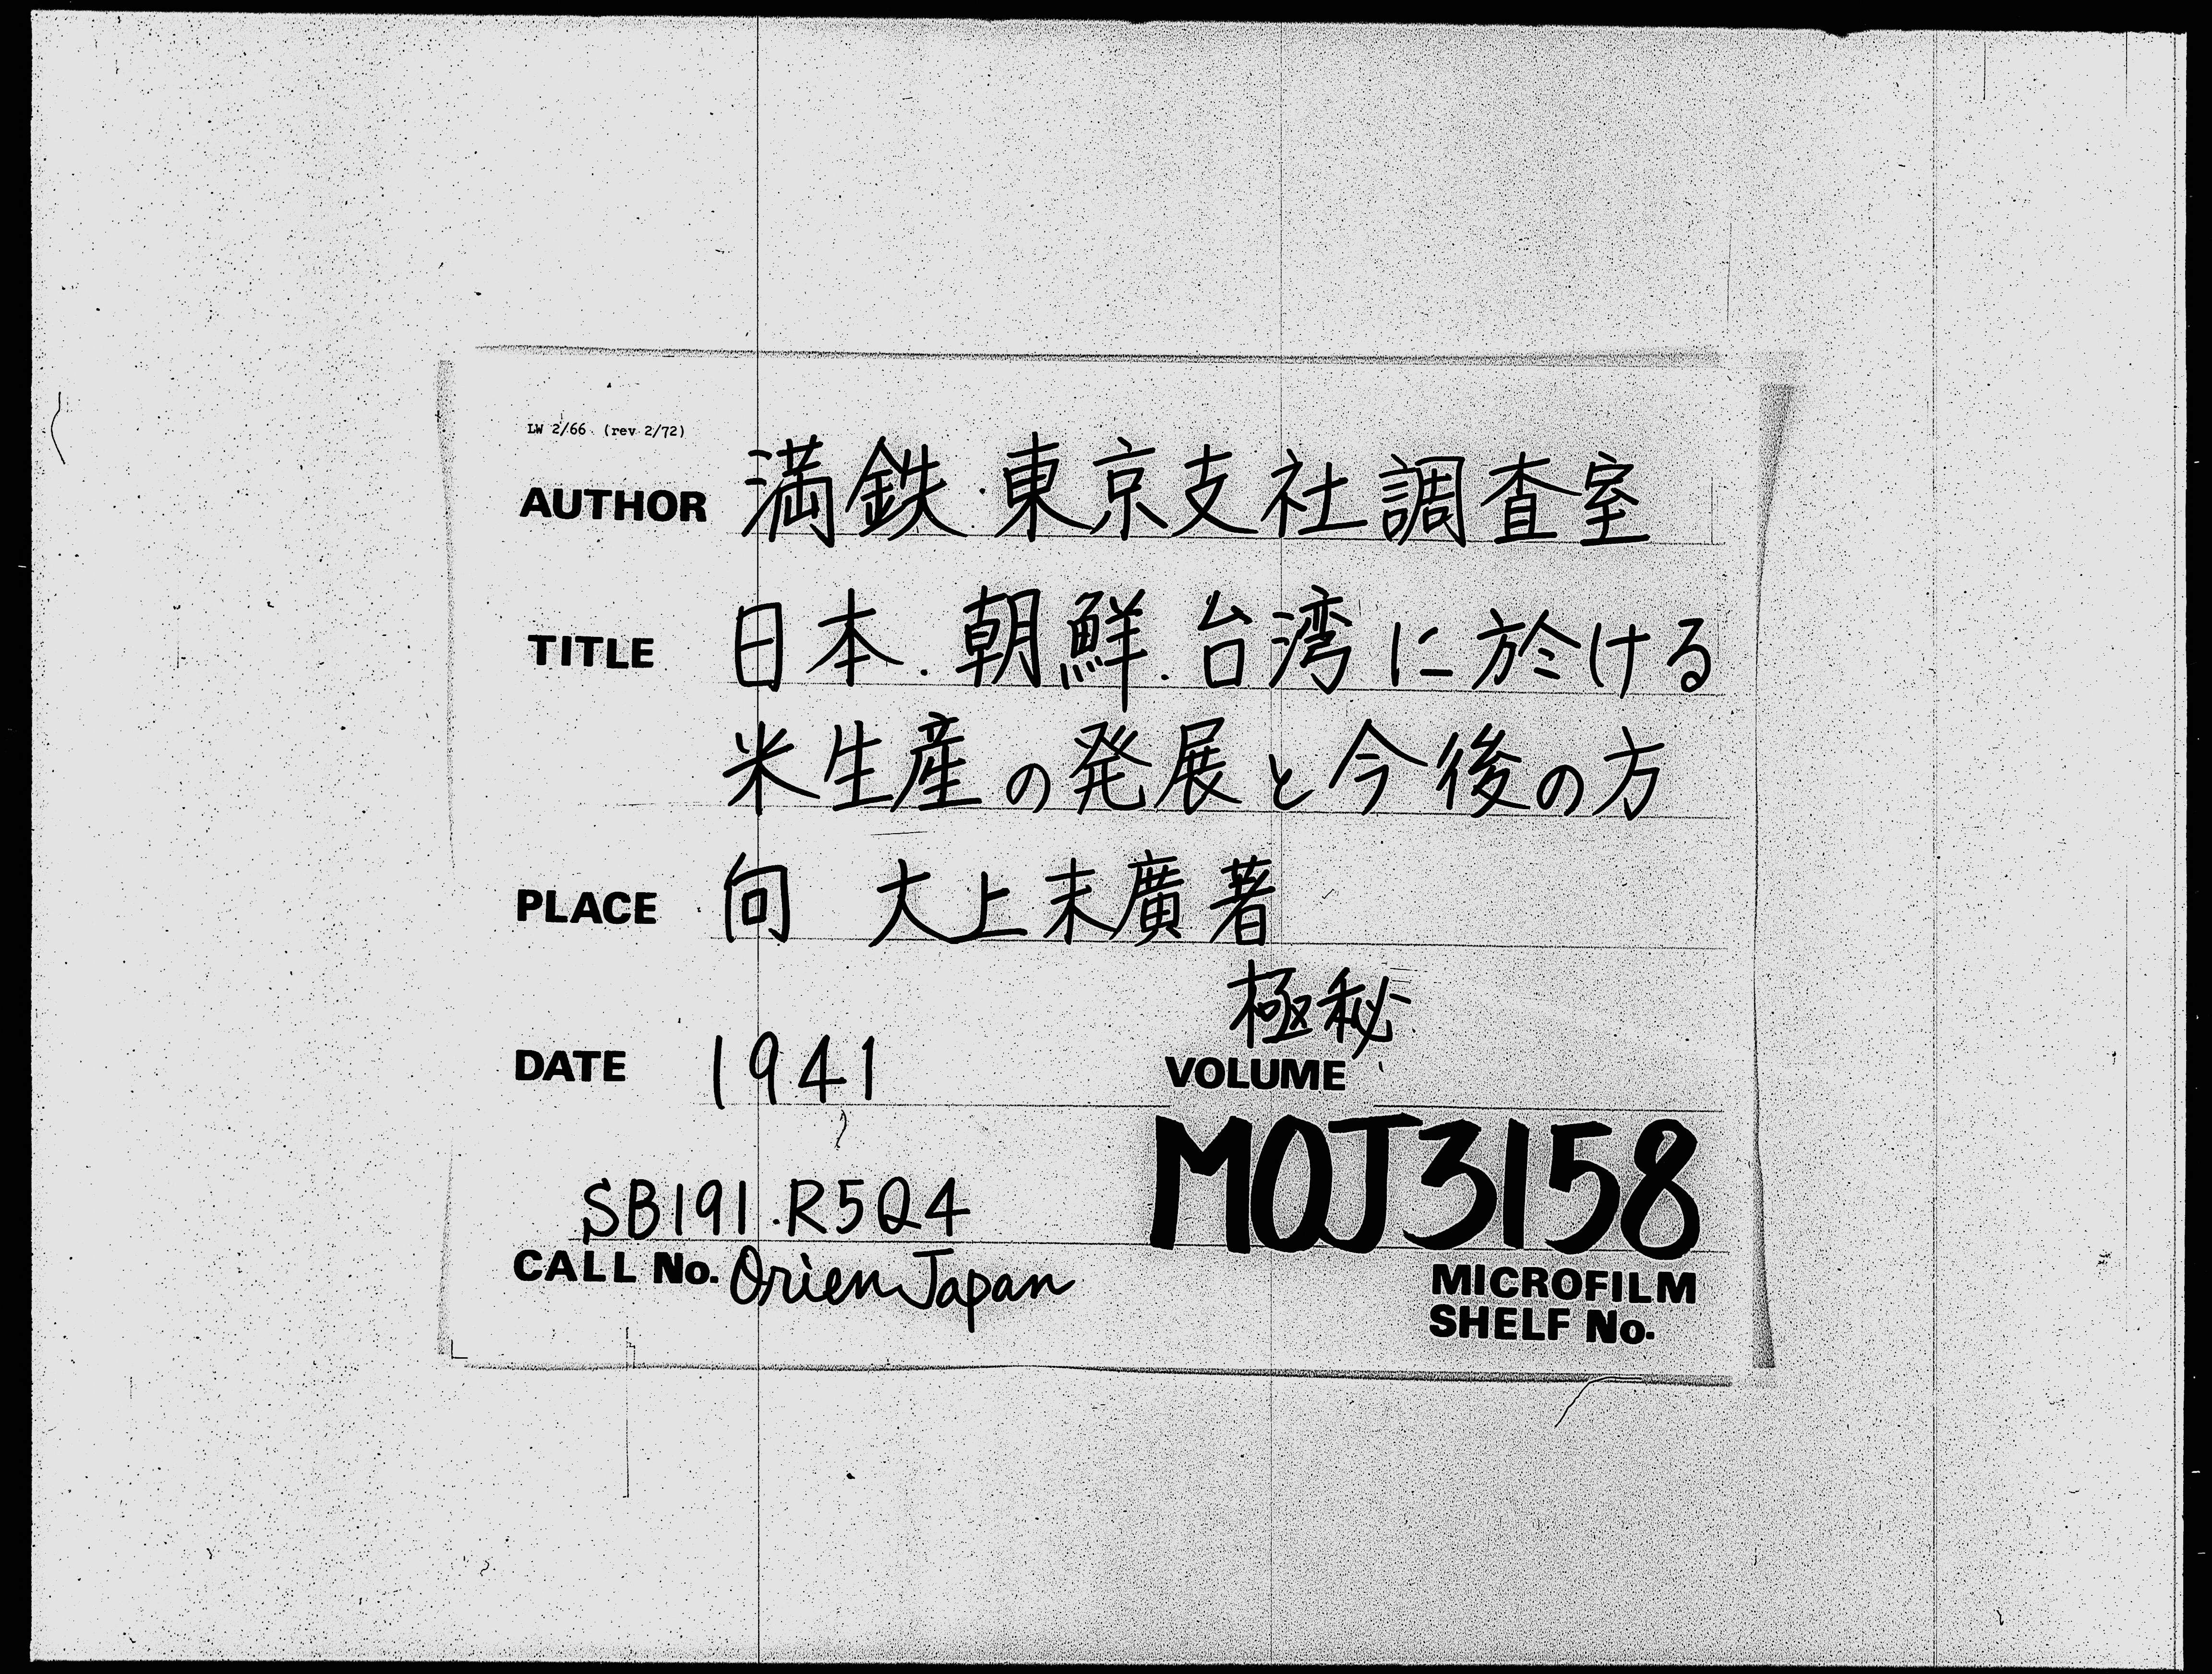 LW 2/66 (rev 2/72)
AUTHOR 満鉄.東京支社調査室
TITLE 日本.朝鮮.台湾に於ける
米生産の発展と今後の方
PLACE 向 大上末廣著
極秘
DATE 1941 VOLUME
SB191.R5Q4 MOJ3158
CALL No. Orien Japan MICROFILM
SHELF No.